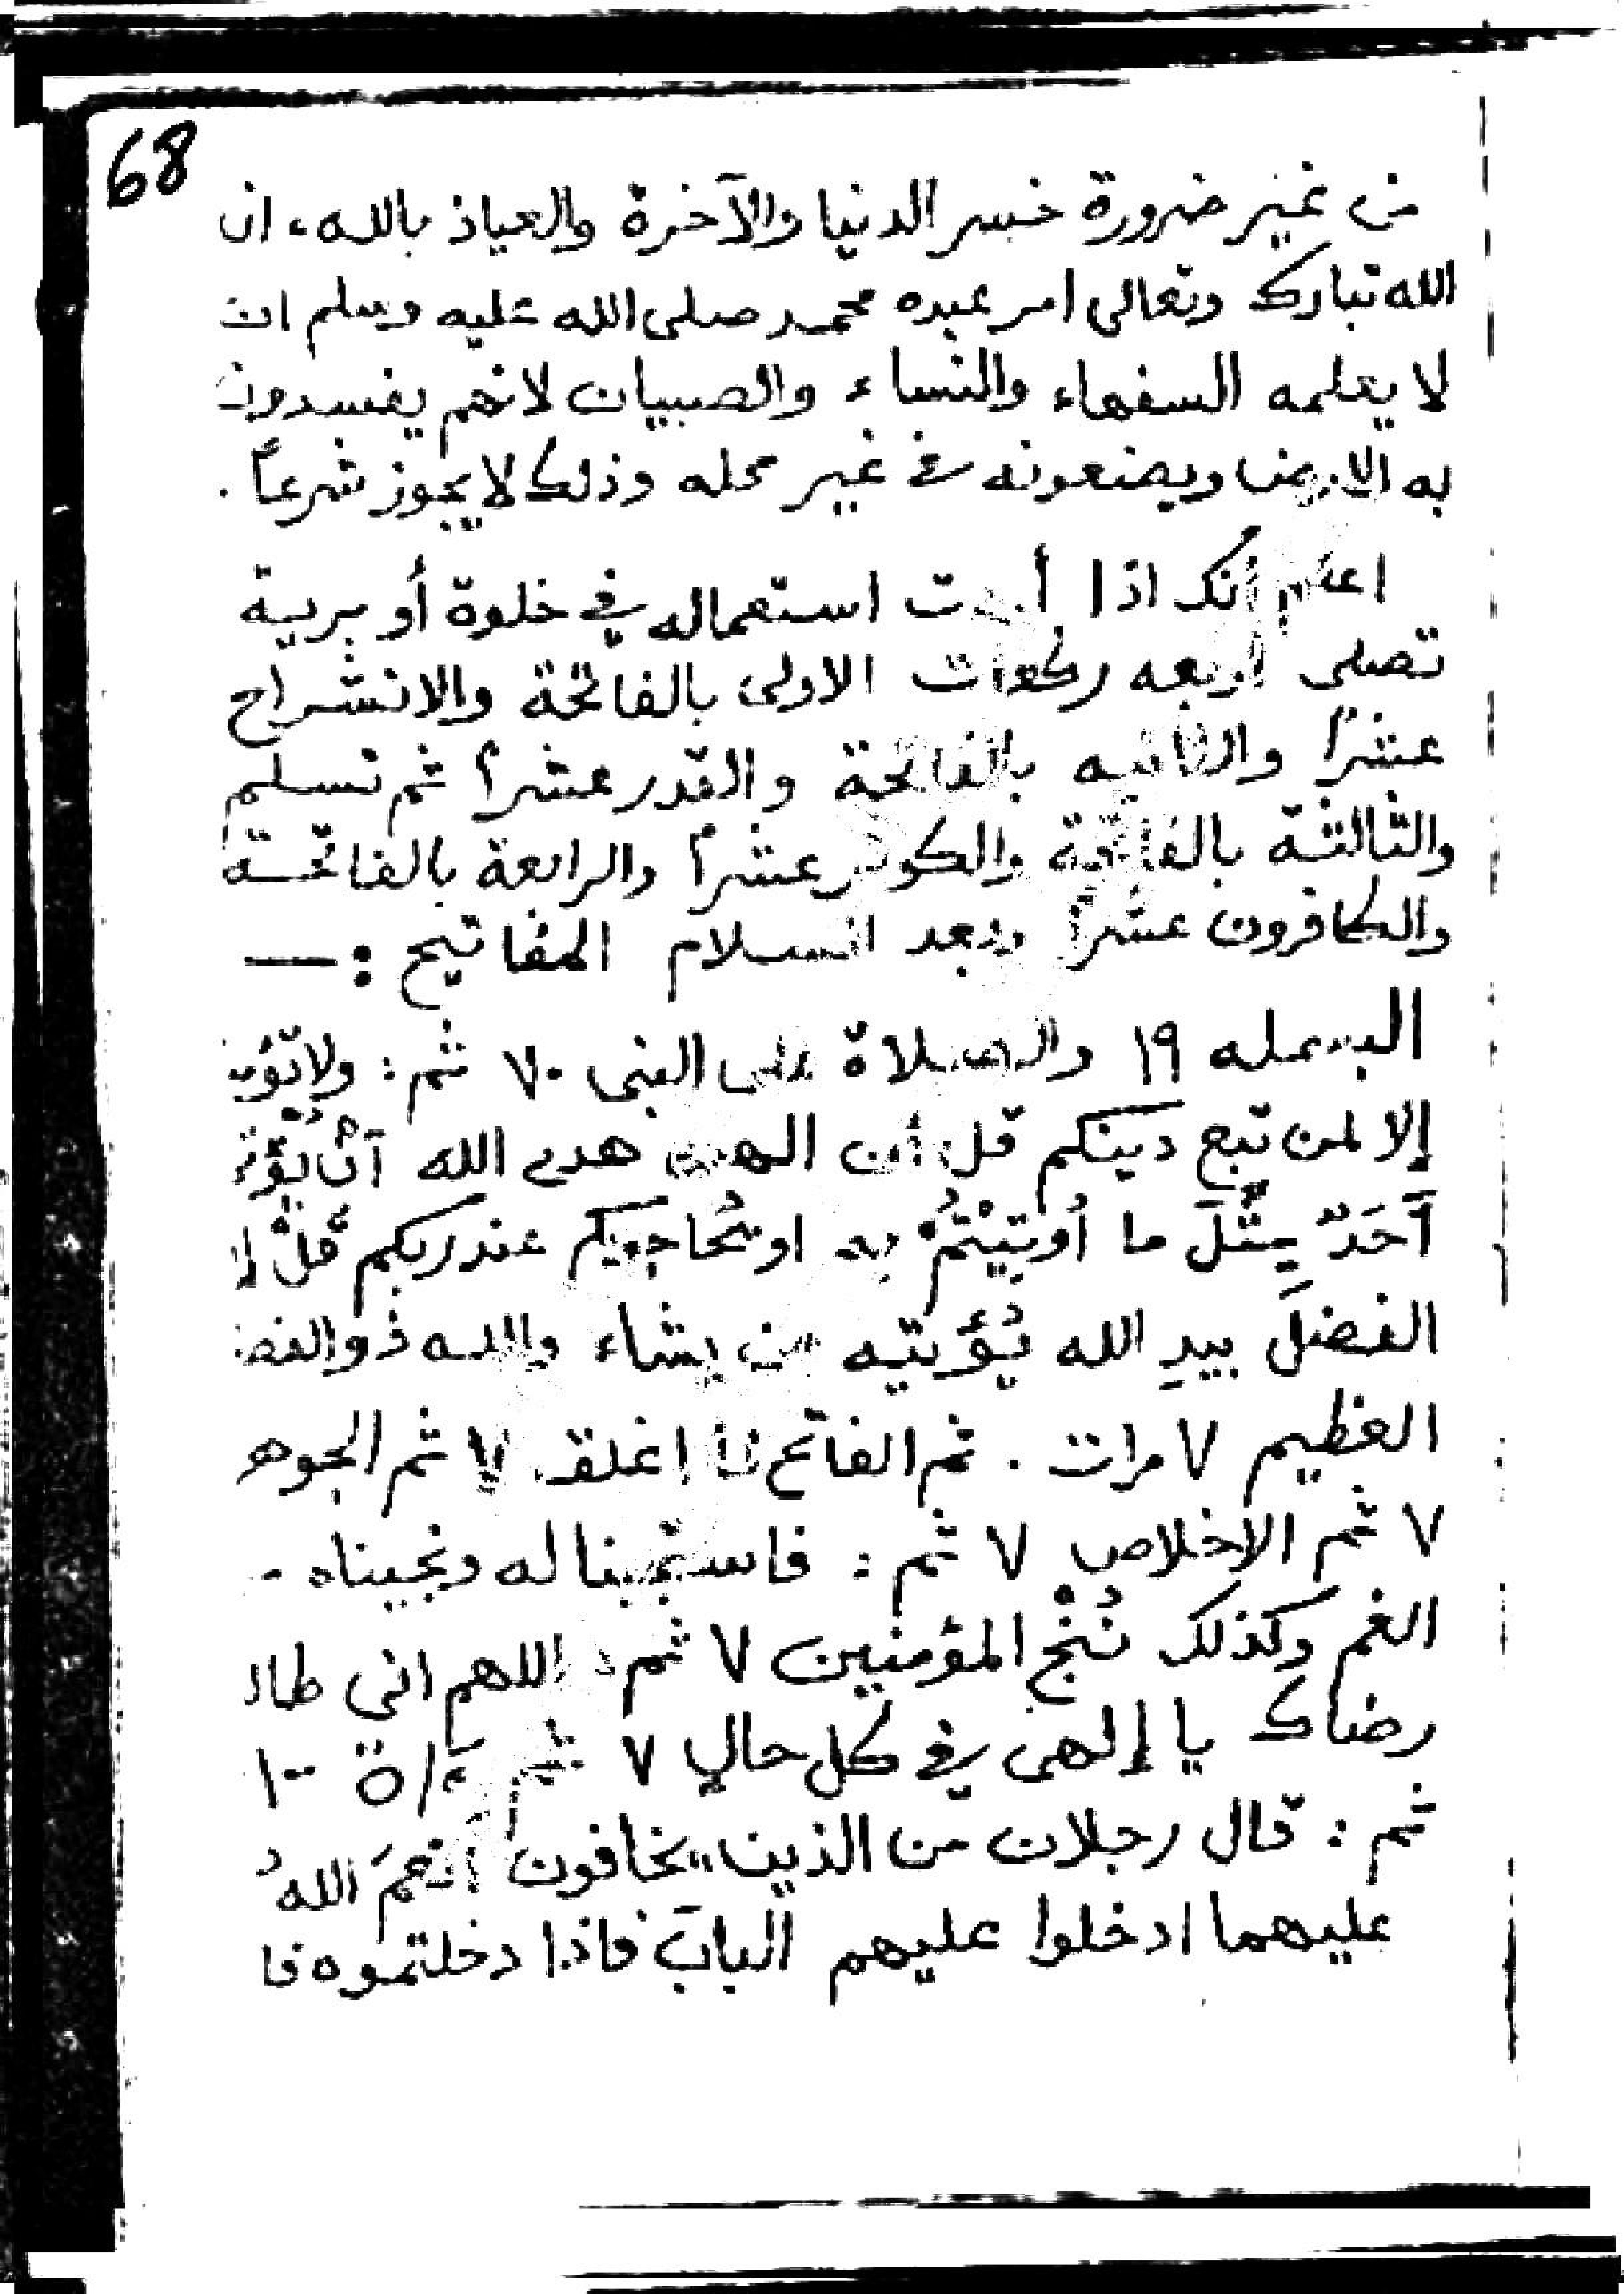 68
من غير ضرورة خسر الدنيا والآخرة والعياذ بالله، ان
الله تبارك وتعالى امر عبده محمد صلى الله عليه وسلم ان
لا يعلمه السفهاء والنساء والصبيان لانهم يفسدون
به الارض ويضعونه في غير محله وذلك لا يجوز شرعاً.
اعلم أنك اذا أردت استعماله في خلوة أو برية
تصلى اربعه ركعات الاولى بالفاتحة والانشراح
عشراً والثانيه بالفاتحة والقدر عشراً ثم تسلم
والثالثة بالفاتحة والكوثر عشراً والرابعة بالفاتحة
والكافرون عشراً وبعد السلام المفاتيح :—
البسمله ١٩ والصلاة على النبى ٧٠ ثم : ولا تؤمنـ
إلا لمن تبع دينكم قل أن الهدى هدى الله آنْ يُؤْتَـ
آحَدٌ مِثْلَ ما أُوتِيْتُمْ به او يُحاجوكم عند ربكم قُلْ إ
الفضلَ بيدِ الله يُؤتيه من يشاء والله ذو الفضـ
العظيم ٧ مرات . ثم الفاتح لما اغلق ٧ ثم الجوهـ
٧ ثم الاخلاص ٧ ثم : فاستجبنا له ونجيناه
الغم وكذلك نُنْجِ المؤمنين ٧ ثم : اللهم انى طالـ
رضاك يا إلهى في كل حالٍ ٧ ثم ١٠٠
ثم : قال رجلان من الذين يخافون أنعمَ اللهُ
عليهما ادخلوا عليهم البابَ فاذا دخلتموه فا